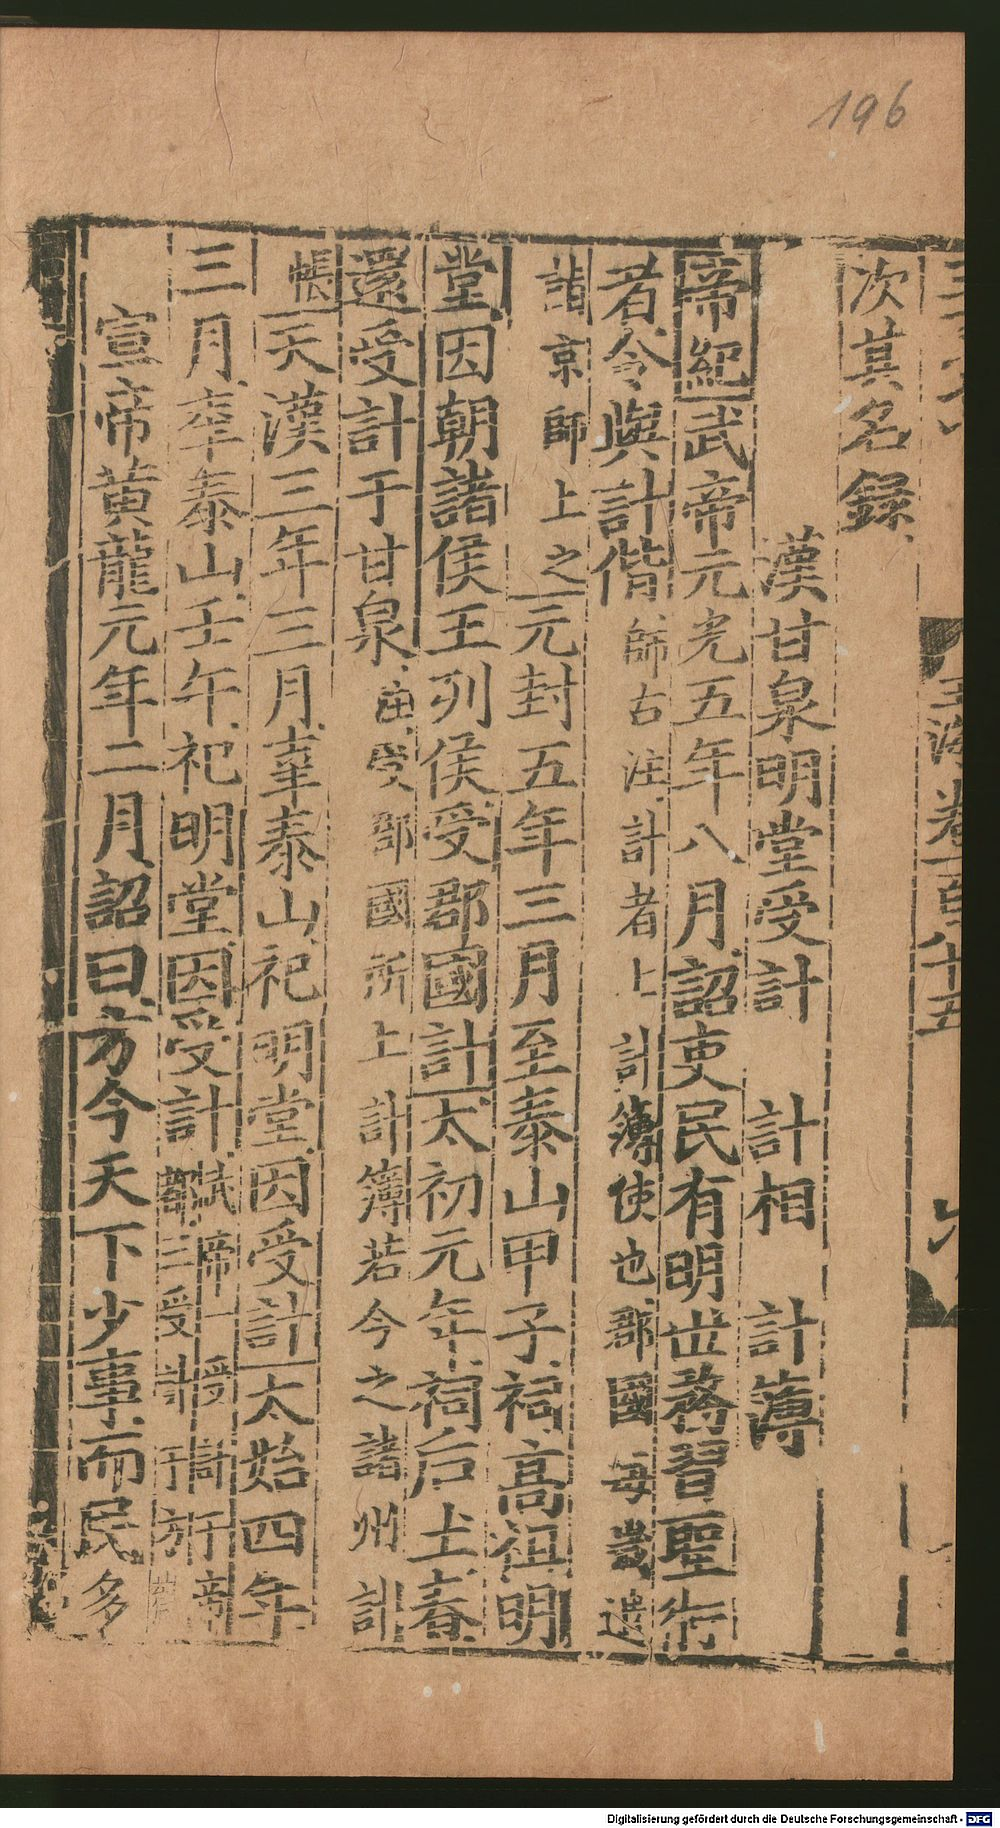 196
玉海卷一百八十五
六
次其名録
漢甘泉明堂受計　計相　計簿
帝紀武帝元光五年八月詔吏民有明世務習聖術
者令與計偕師古注計者上計簿使也郡國每歲遣
詣京師上之元封五年三月至泰山甲子祠高祖明
堂因朝諸侯王列侯受郡國計太初元年祠后土春
還受計于甘泉注受郡國所上計簿若今之諸州計
帳天漢三年三月幸泰山祀明堂因受計太始四年
三月幸泰山壬午祀明堂因受計武帝一受計于帝都三受計于方
宣帝黃龍元年二月詔曰方今天下少事而民多
Digitalisierung gefördert durch die Deutsche Forschungsgemeinschaft - DFG